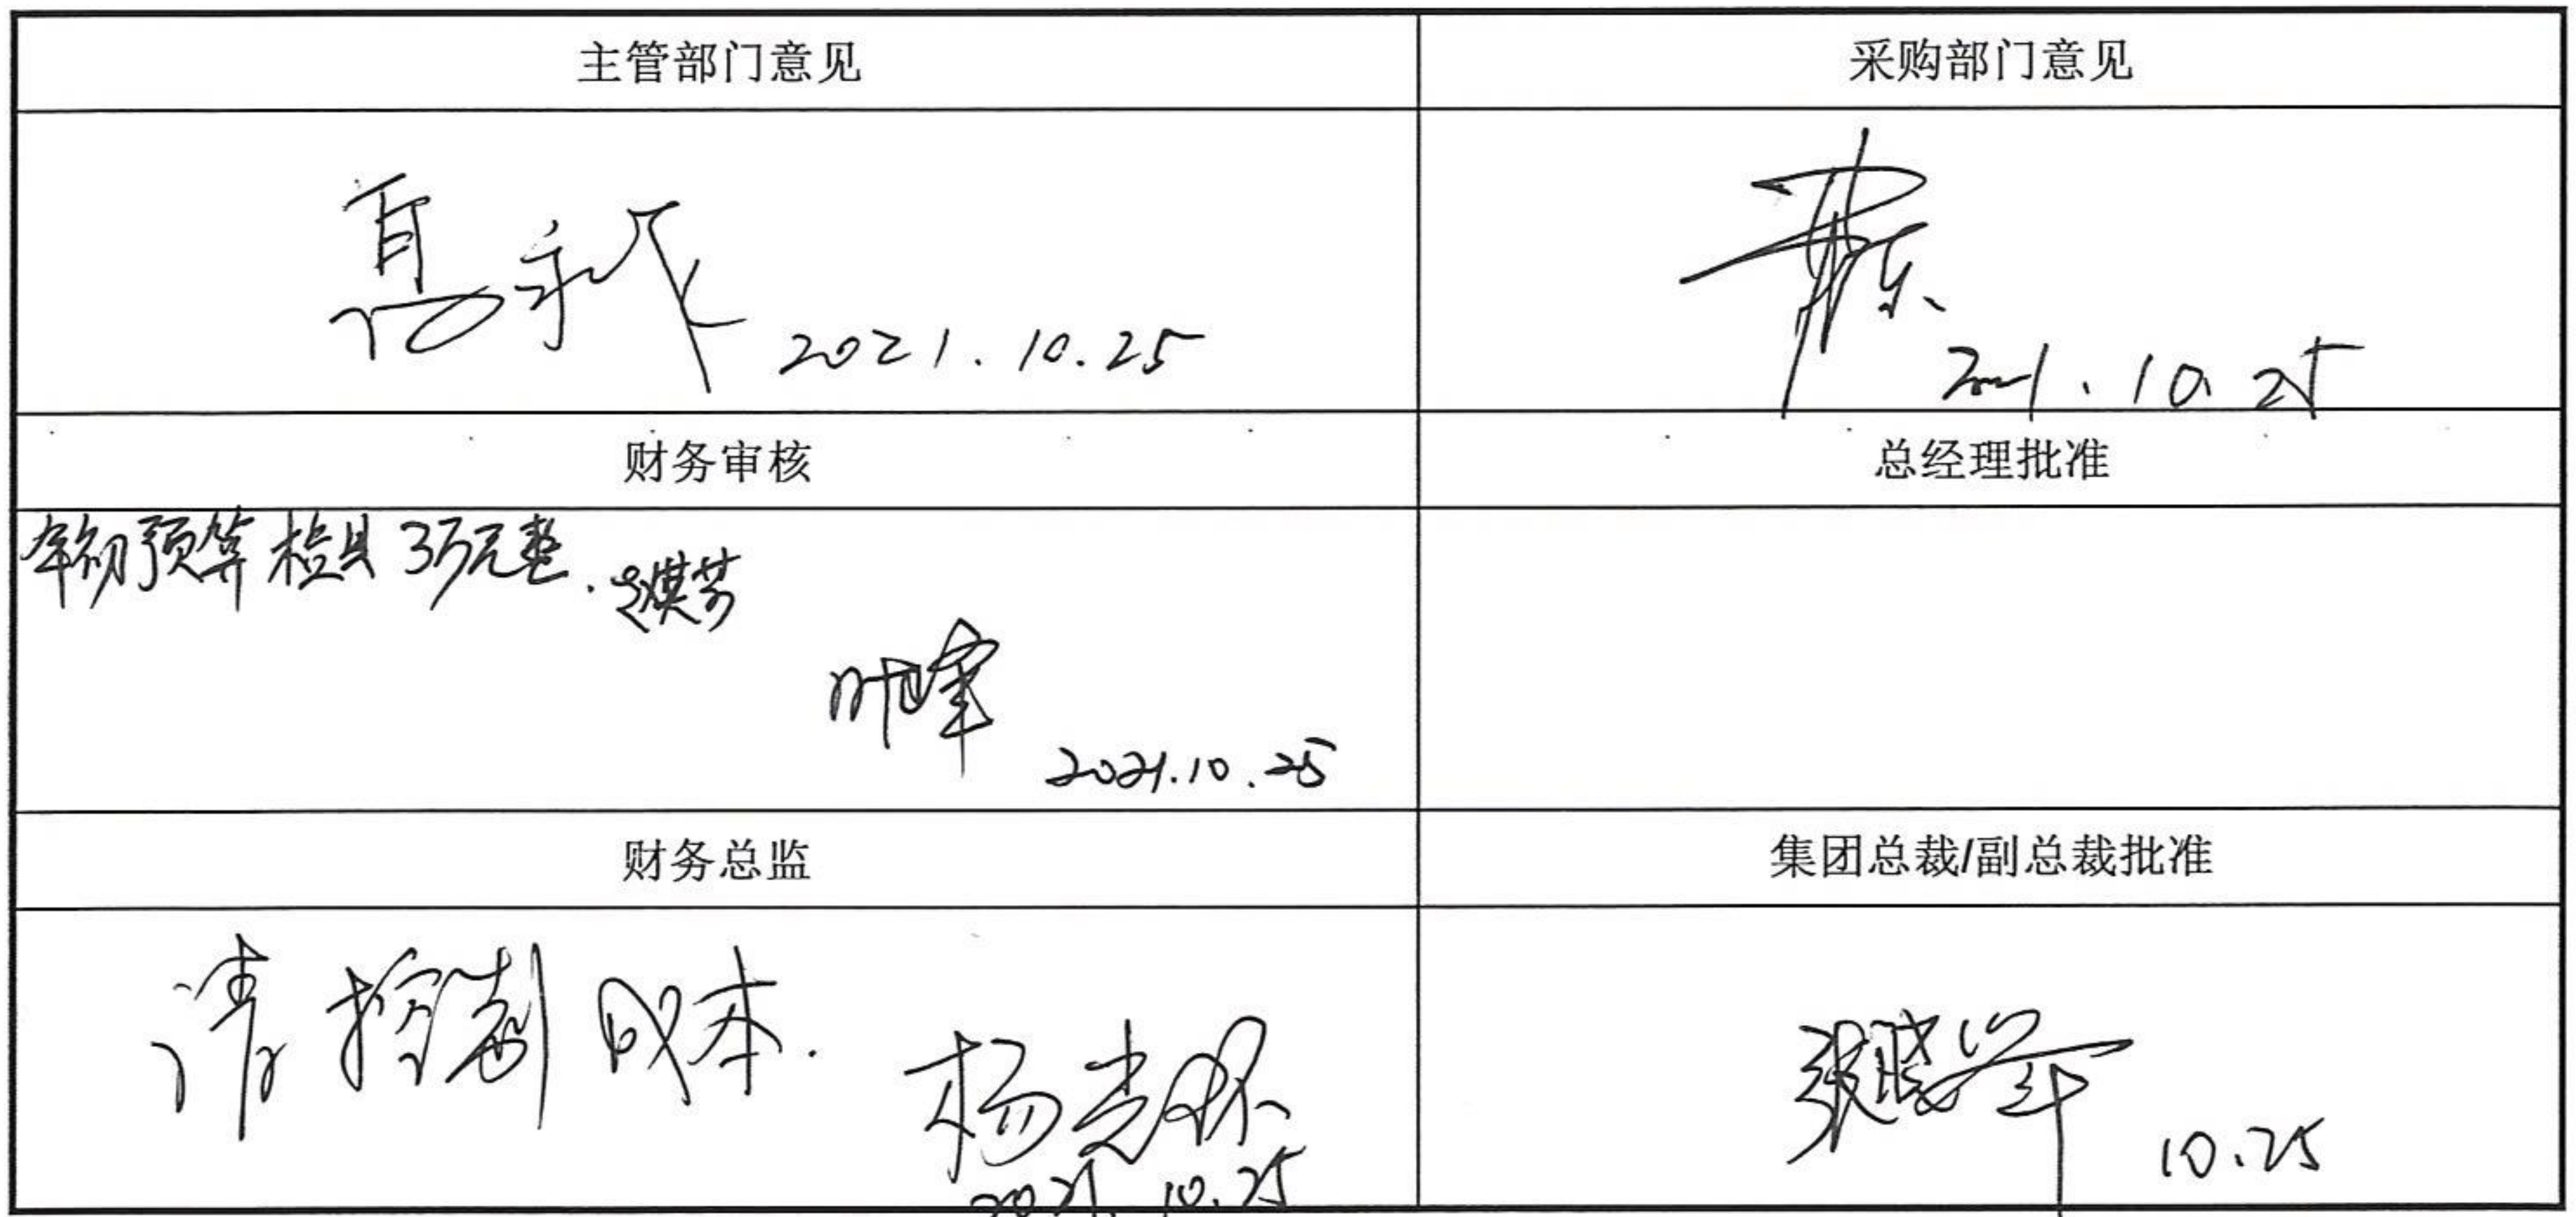 主管部门意见
采购部门意见
2021.10.25
2021.10.25
财务审核
总经理批准
年初预算检具3万元整.
2021.10.25
财务总监
集团总裁/副总裁批准
请控制成本.
2021.10.25
10.25